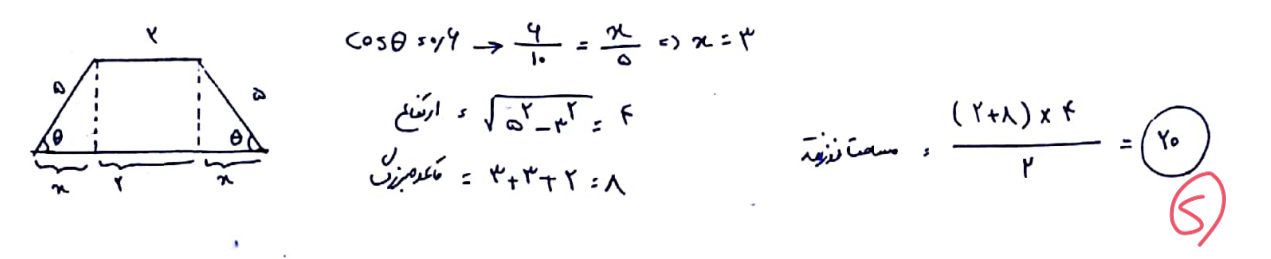 ۲
۵ ۵
θ θ
x ۲ x
cosθ = ۰/۶ → ۶/۱۰ = x/۵ ⇔ x = ۳
ارتفاع = √۵^۲ − ۳^۲ = ۴
قاعده بزرگ = ۳+۳+۲ = ۸
مساحت ذوزنقه = (۲+۸) × ۴ / ۲ = ۲۰